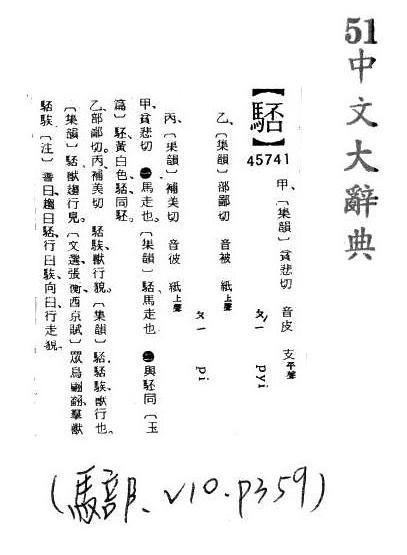 51中文大辭典
【⿰馬否】
45741
甲、〔集韻〕貧悲切 音皮 支平聲
ㄆㄧˊ pyi
乙、〔集韻〕部鄙切 音被 紙上聲
ㄆㄧ pi
丙、〔集韻〕補美切 音彼 紙上聲
甲、貧悲切 ㊀馬走也。〔集韻〕⿰馬否馬走也 ㊁與駓同〔玉
篇〕駓黃白色、⿰馬否同駓。
乙、部鄙切。丙、補美切 ⿰馬否騃、獸行貌。〔集韻〕⿰馬否、⿰馬否騃、獸行也。
〔集韻〕⿰馬否、獸趨行皃。〔文選、張衡、西京賦〕眾鳥翩翻、羣獸
⿰馬否騃〔注〕善曰、趨曰⿰馬否、行曰騃、向曰、行走貌。
(馬部、V10.P359)